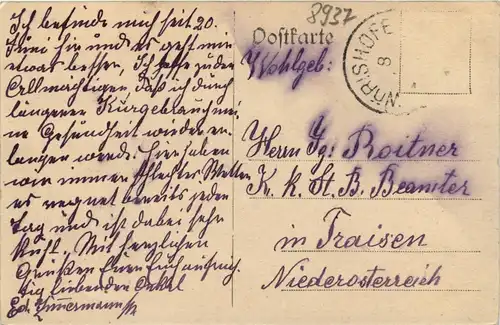 8937
Ich befinde mich seit 20.
Juni hier und es geht mir
etwas besser, Ich hoffe zu den
Allmächtigen, daß ich durch
längeren Kurgebrauch mei-
ne Gesundheit wieder er-
langen werde. Hier haben
wir immer schlechtes Wetter
es regnet bereits jeden
Tag und ist dabei sehr
kühl. Mit herzlichen
Grüßen Euer Euch aufrich-
tig liebender Onkel
Ed. Zimmermann
Postkarte
WÖRISHOFEN
8
Wohlgeb:
Herrn Ig: Roitner
K. k. St. B. Beamter
in Traisen
Niederösterreich